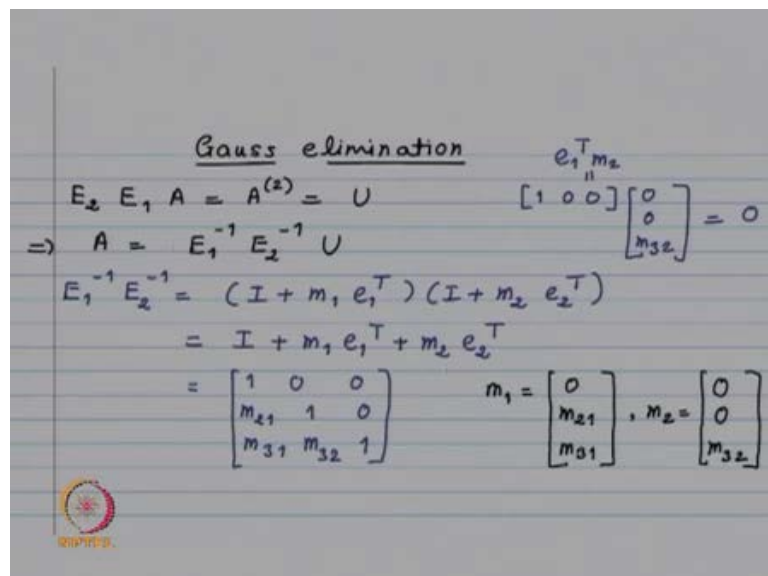 Gauss elimination
E₂ E₁ A = A⁽²⁾ = U
e₁ᵀ m₂
=
[1 0 0] [0 0 m₃₂] = 0
=> A = E₁⁻¹ E₂⁻¹ U
E₁⁻¹ E₂⁻¹ = (I + m₁ e₁ᵀ) (I + m₂ e₂ᵀ)
= I + m₁ e₁ᵀ + m₂ e₂ᵀ
= [1 0 0
m₂₁ 1 0
m₃₁ m₃₂ 1]
m₁ = [0 m₂₁ m₃₁], m₂ = [0 0 m₃₂]
NPTEL